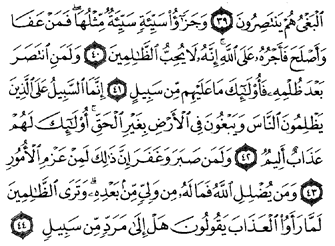 ٱلْبَغْىُ هُمْ يَنتَصِرُونَ ٣٩ وَجَزَٰٓؤُا۟ سَيِّئَةٍ سَيِّئَةٌ مِّثْلُهَا ۖ فَمَنْ عَفَا
وَأَصْلَحَ فَأَجْرُهُۥ عَلَى ٱللَّهِ ۚ إِنَّهُۥ لَا يُحِبُّ ٱلظَّٰلِمِينَ ٤٠ وَلَمَنِ ٱنتَصَرَ
بَعْدَ ظُلْمِهِۦ فَأُو۟لَٰٓئِكَ مَا عَلَيْهِم مِّن سَبِيلٍ ٤١ إِنَّمَا ٱلسَّبِيلُ عَلَى ٱلَّذِينَ
يَظْلِمُونَ ٱلنَّاسَ وَيَبْغُونَ فِى ٱلْأَرْضِ بِغَيْرِ ٱلْحَقِّ ۚ أُو۟لَٰٓئِكَ لَهُمْ
عَذَابٌ أَلِيمٌ ٤٢ وَلَمَن صَبَرَ وَغَفَرَ إِنَّ ذَٰلِكَ لَمِنْ عَزْمِ ٱلْأُمُورِ
٤٣ وَمَن يُضْلِلِ ٱللَّهُ فَمَا لَهُۥ مِن وَلِىٍّ مِّنۢ بَعْدِهِۦ ۗ وَتَرَى ٱلظَّٰلِمِينَ
لَمَّا رَأَوُا۟ ٱلْعَذَابَ يَقُولُونَ هَلْ إِلَىٰ مَرَدٍّ مِّن سَبِيلٍ ٤٤